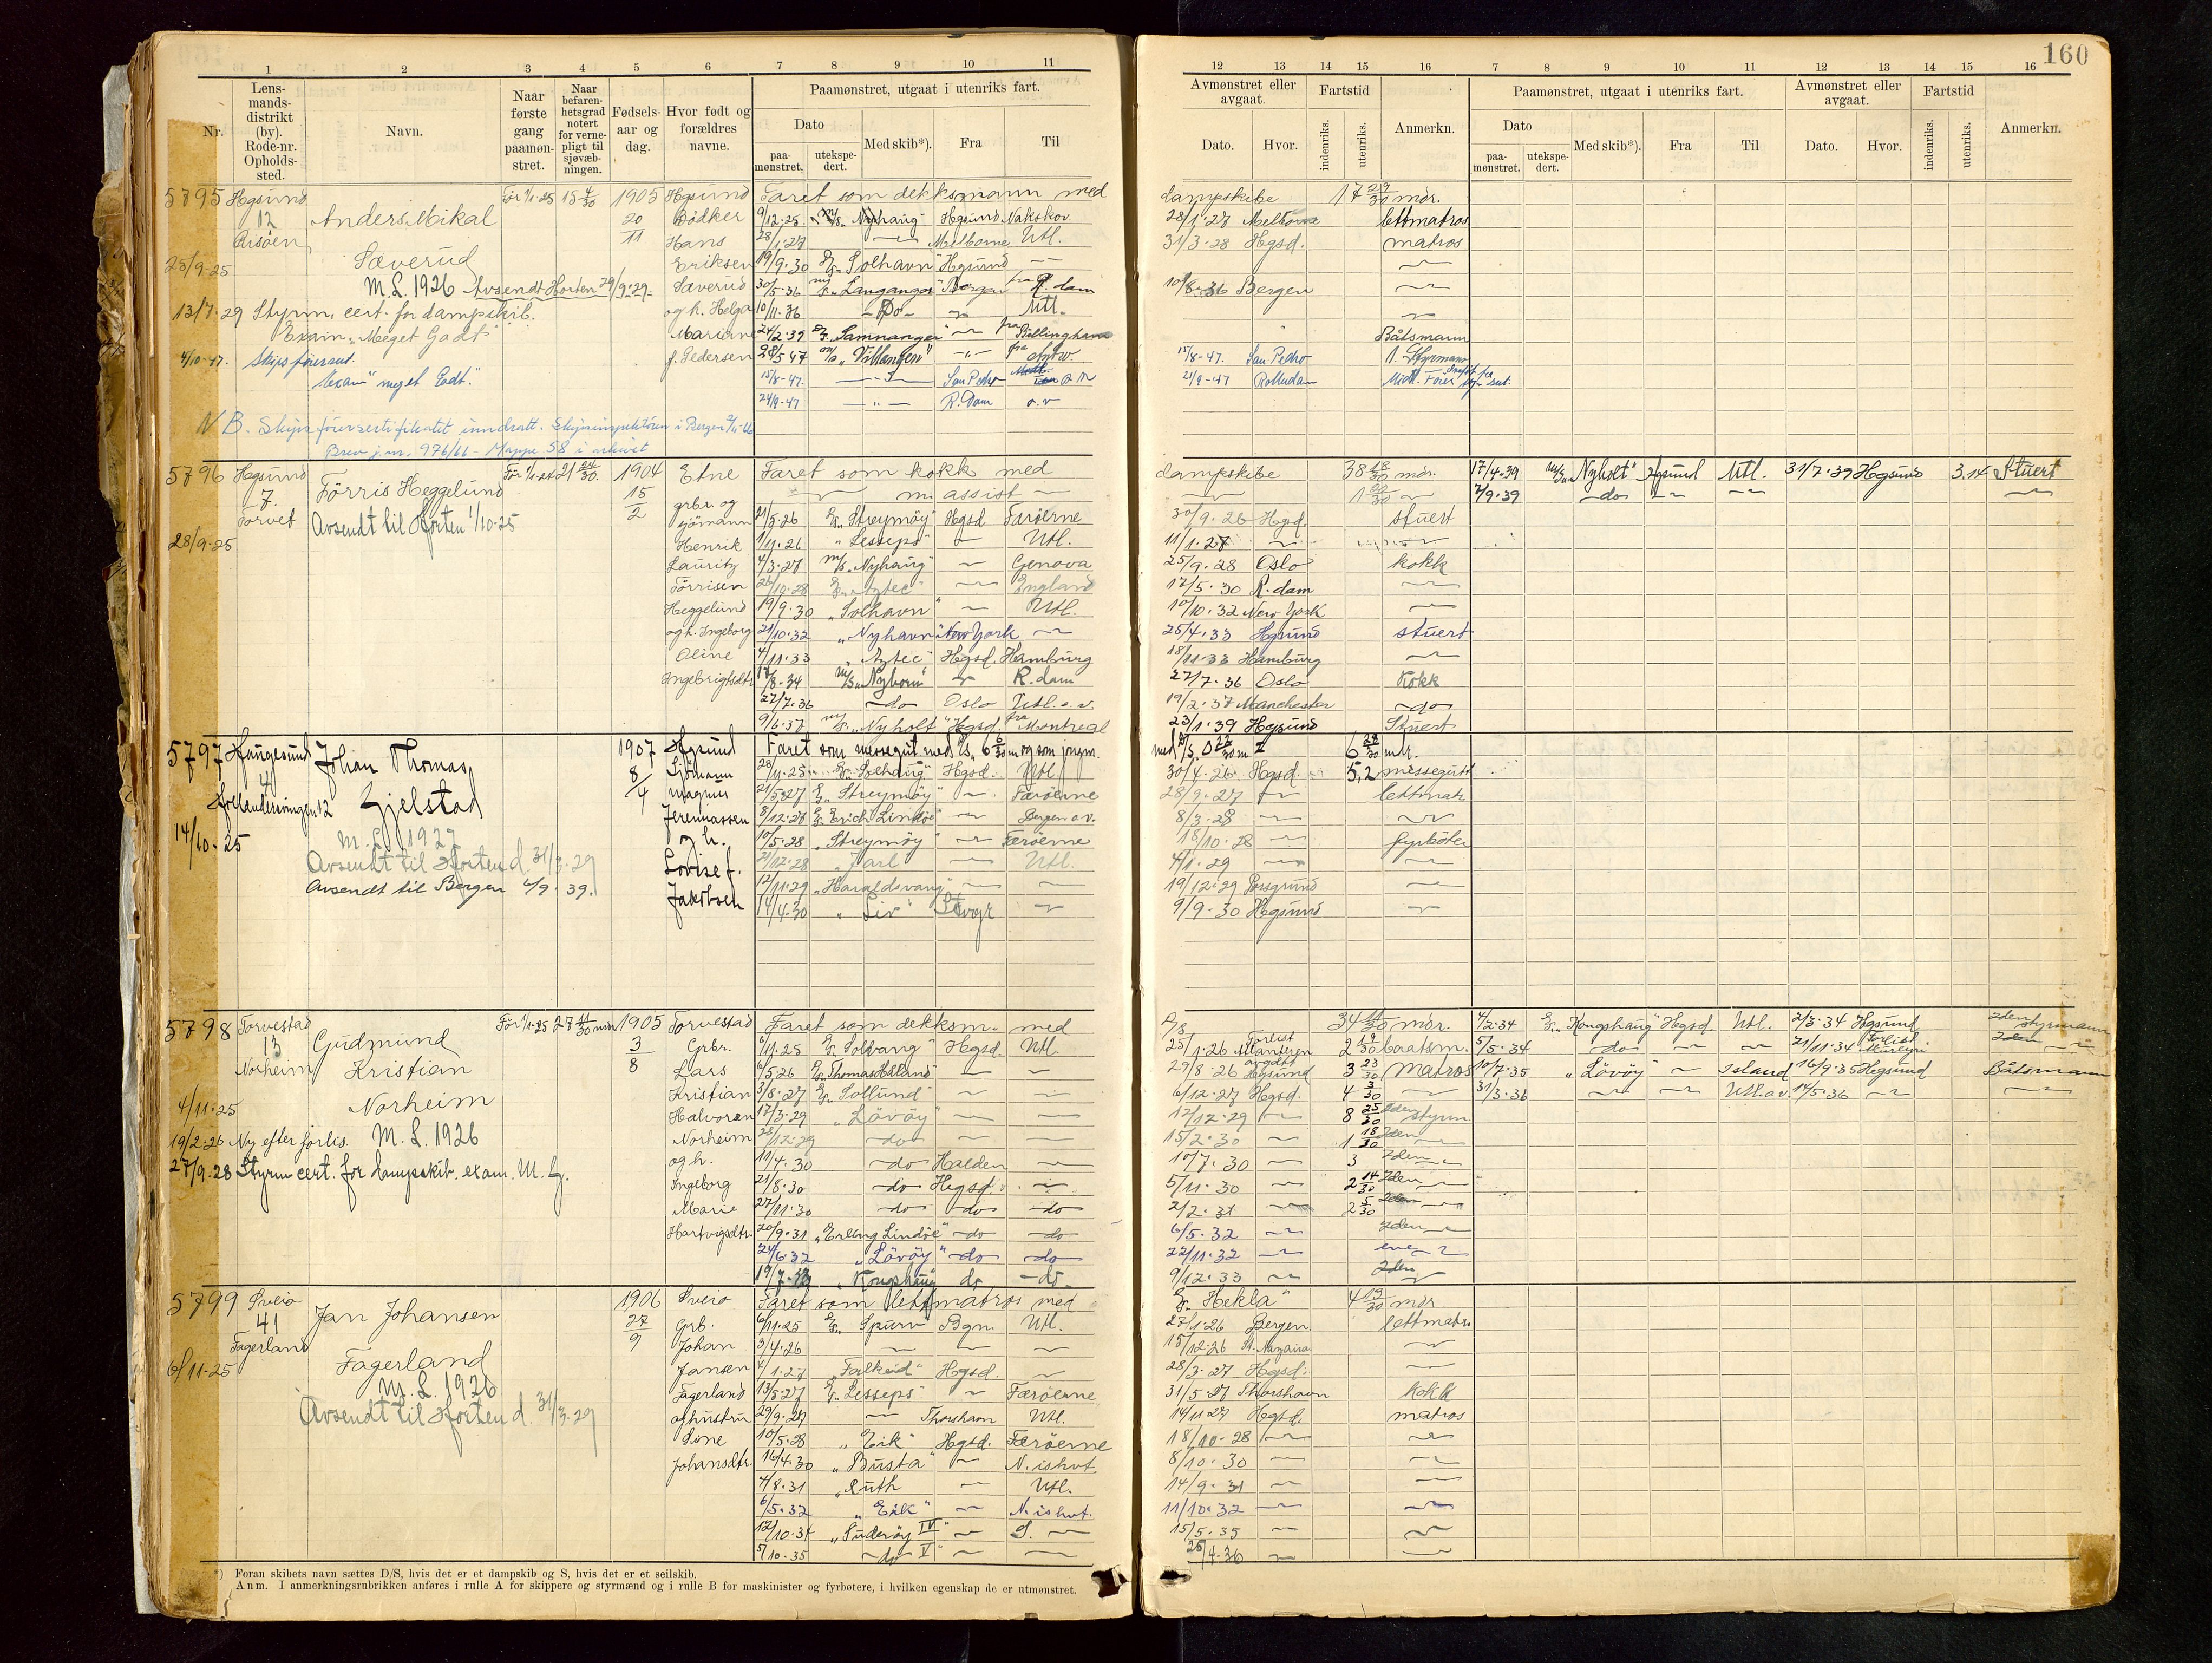 160
1 2 3 4 5 6 7 8 9 10 11
12 13 14 15 16 7 8 9 10 11 12 13 14 15 16
Nr.
Lens-
mands-
distrikt
(by).
Rode-nr.
Opholds-
sted.
Navn.
Naar
første
gang
paamøn-
stret.
Naar
befaren-
hetsgrad
notert
for verne-
pligt til
sjøvæb-
ningen.
Fødsels-
aar og
dag.
Hvor født og
forældres
navne.
Paamønstret, utgaat i utenriks fart.
Dato
paa-
mønstret.
utekspe-
dert.
Med skib*).
Fra
Til
Avmønstret eller
avgaat.
Dato.
Hvor.
Fartstid
indenriks.
utenriks.
Anmerkn.
Paamønstret, utgaat i utenriks fart.
Dato
paa-
mønstret.
utekspe-
dert.
Med skib*).
Fra
Til
Avmønstret eller
avgaat.
Dato.
Hvor.
Fartstid
indenriks.
utenriks.
Anmerkn.
5795 Hgsund
12
Risøen
25/9-25
Anders Mikal
Sæverud
M.L. 1926 Avsendt Horten 29/9-29
13/7-29 Styrm. cert. for dampskib.
Exam. "Meget Godt"
4/10-47. Skipsførersert.
Exam "meget Godt".
Før 1/1-25
1905
20
11
Hgsund
Bødker
Hans
Eriksen
Sæverud
og h. Helga
Mariane
f. Pedersen
Faret som dekksmann med
9/12-25 "Nyhaug" Hgsund Nakskov
28/1-27 Melborne Utl.
19/9-30 "Solhavn" Hgsund
30/5-36 "Langanger" Bergen fra R.dam
10/11-36 -Do- Utl.
24/2-39 "Samnanger" fra Bellingham
28/5 47 fra Antw
15/8-47 San Pedro
24/9-47 R.dam o.v
dampskibe 17 29/30 mdr.
28/1-27 Melborne lettmatros
31/3-28 Hgsd. matros
10/8-36 Bergen
Båtsmann
15/8-47. San Pedro 1. Styrmann
21/9-47
N B. Skipsførersertifikatet inndratt. Skipsinspektøren i Bergen
Brev j.nr. 976/66 - Mappe 58 i arkivet
5796 Hgsund
7.
Torvet
28/9-25
Tørris Heggelund
Avsendt til Horten 1/10-25
1904
15
2
Etne
grbr. og
sjömann
Henrik
Lauritz
Tørrisen
Heggelund
og h. Ingeborg
Oline
Ingebrigtsdtr
Faret som kokk med
m. assist
21/5-26 "Streymøy" Hgsd Færøerne
1/11-26 "Lesseps" Utl.
4/3-27 "Nyhaug" Genova
26/10-28 "Aztec" England
19/9-30 "Solhavn" Utl.
21/10-32 "Nyhavn" New York
4/11-33 "Aztec" Hgsd. Hamburg
17/8-34 "Nyhorn" R.dam
27/7-36 do Oslo Utl. o.v.
9/6-37 "Nyholt" Hgsd fra Montreal
dampskibe 38 18/30 mdr. 17/4-39 "Nyholt" Hgsund Utl. 31/7-39 Hegsund 3.14 Stuert
2/9-39 do
30/9-26 Hgsd. stuert
11/1-27
25/9-28 Oslo kokk
17/5-30 R.dam
10/10-32 New York
25/4-33 Hgsund stuert
18/11-33 Hamburg
27/7-36 Oslo Kokk
19/2-37 Manchester do
23/1-39 Hegsund Stuert
5797 Haugesund
4
Hollendersvingen 12
14/10-25
Johan Thomas
Gjelstad
M.L. 1927
Avsendt til Horten d. 31/3-29
Avsendt til Bergen 4/9-39.
1907
8/4
Hgsund
Sjömann
Magnus
Jeremiassen
og h.
Lovise f.
Jakobsen
Faret som messegut med
28/11-25 "Solhaug" Hgsd. Utl.
21/5-27 "Streymøy" Færøerne
8/12-27 "Erich Lindøe" Bergen o.v.
10/5-28 "Streymøy" Færøerne
21/12-28 "Jarl" Utl.
12/11-29 "Haraldsvang"
14/4-30 "Liv"
30/4-26 Hgsd. 5,2 messegutt
28/9-27 lettmatr
8/3-28
18/10-28 fyrbøter
4/1-29
19/12-29 Porsgrund
9/9-30 Hegsund
5798 Torvestad
13
Norheim
4/11-25
Gudmund
Kristian
Norheim
19/2-26 Ny efter forlis. M.L. 1926
27/9-28 Styrm cert. for dampskib. exam. M.G.
Før 1/1-25
1905
3
8
Torvestad
Grbr.
Lars
Kristian
Halvorsen
Norheim
og h.
Ingeborg
Marie
Hartvigsdtr.
Faret som dekksm. med
6/11-25 "Solvang" Hgsd. Utl.
6/5-26 "Thomas Haaland"
3/8-27 "Sollund"
17/3-29 "Lövöy"
28/12-29 do
11/4-30 do Halden
21/8-30 do Hegsd.
27/11-30 do do do
20/9-31 "Erling Lindöe" do do
24/6-32 "Lövöy" do do
19/7-33 "Kongshaug" do do
34 11/30 mdr. 4/2-34 "Kongshaug" Hgsd. Utl. 2/3-34 Hgsund 2den styrmann
25/1-26 Forlist Atlanteren 2 19/30 baatsm. 5/5-34 do 21/11-34 Forlist 2den
29/8-26 avgått Hgsund 3 23/30 matros 10/7-35 "Lövöy" Island 16/9-35 Hegsund Båtsmann
6/12-27 Hgsd. 4 3/30 31/3-36 Utl. o.v. 14/5-36
17/12-29 8 25/30 2den styrm
15/2-30 1 18/30 2den
10/7-30 3 2den
5/11-30 2 14/30 2den
2/2-31 2 5/30 2den
6/5-32 2den
22/11-32
9/12-33 2den
5799 Sveio
41
Fagerland
6/11-25
Jan Johansen
Fagerland
M.L. 1926
Avsendt til Horten d. 31/3-29
1906
27
9
Sveio
Grb.
Johan
Jansen
Fagerland
og hustru
Sine
Johansdtr.
Faret som lettmatros med
6/11-25 "Spurv Bgn. Utl.
3/4-26
4/1-27 "Falkeid" Hgsd.
13/5-27 "Lesseps" Færøerne
29/9-27 Thorshavn Utl.
10/5-28 "Eik" Hgsd. Færøerne
16/4-30 "Busta" N. ishvt.
4/8-31 "Ruth Utl.
6/5-32 "Eik" N. ishvt.
12/10-34 "Suderøy IV" S.
5/10-35 do V"
"Hekla" 4 19/30 mdr
27/1-26 Bergen. lettmatr.
15/12-26 St. Nazaire
28/3-27 Hgsd.
31/5-27 Thorshavn kokk
14/11-27 Hgsd. matros
18/10-28
8/10-30
14/9-31
11/10-32
15/5-35
25/4-36
*) Foran skibets navn sættes D/S, hvis det er et dampskib og S, hvis det er et seilskib.
Anm. I anmerkningsrubrikken anføres i rulle A for skippere og styrmænd og i rulle B for maskinister og fyrbøtere, i hvilken egenskap de er utmønstret.